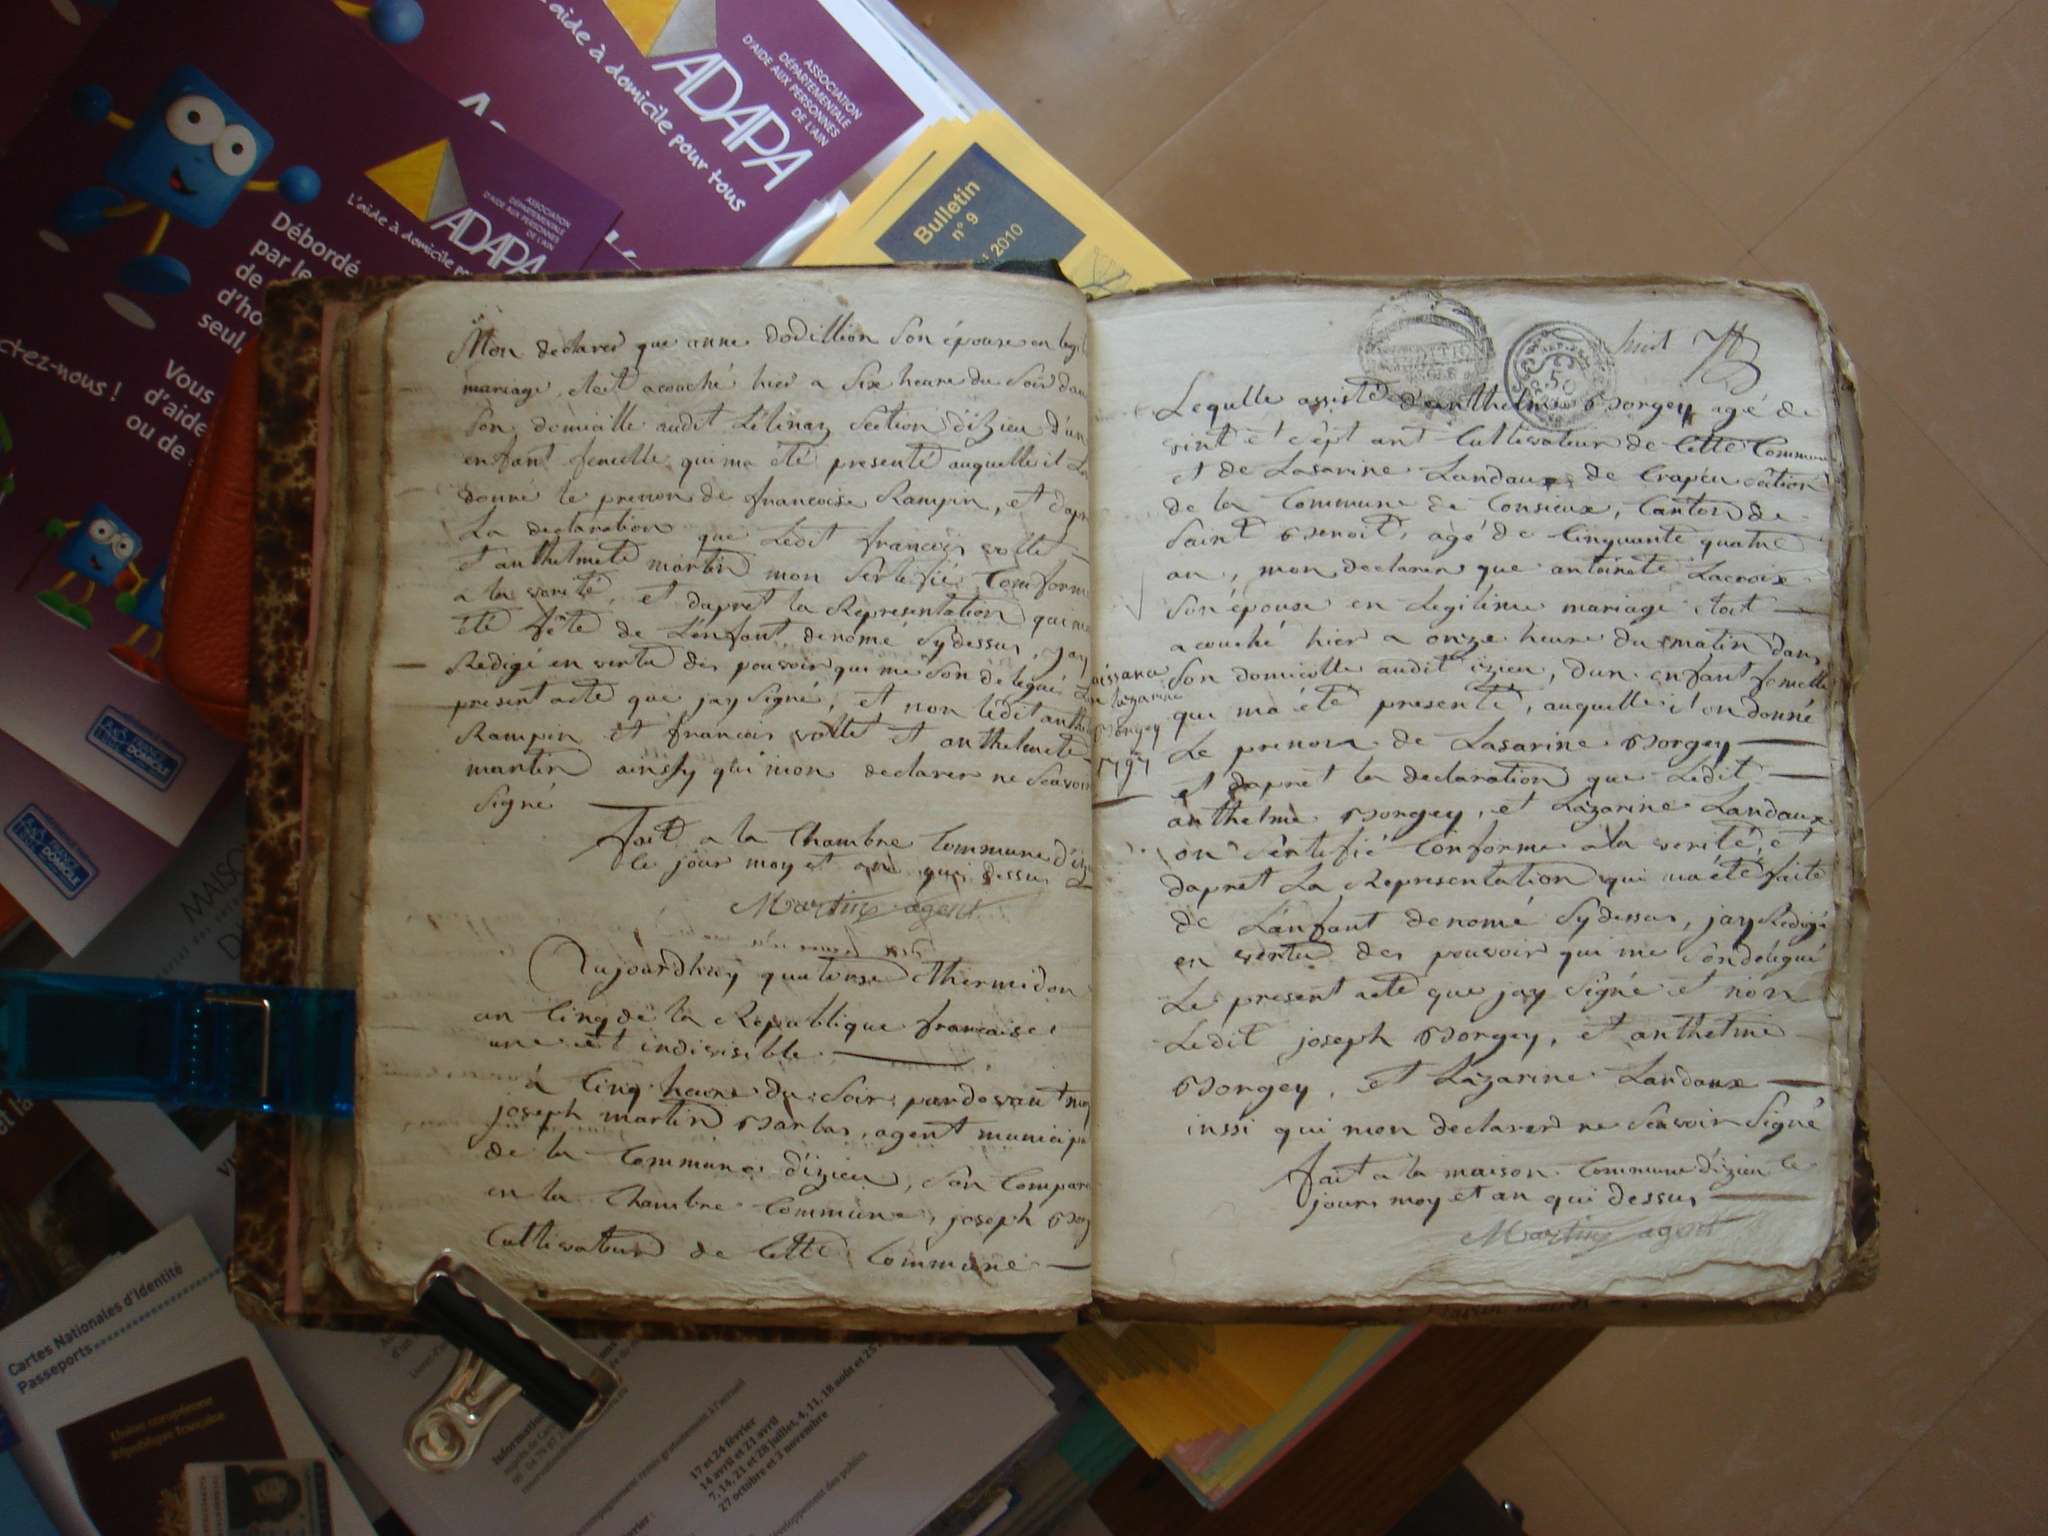 ADAPA
ASSOCIATION
DÉPARTEMENTALE
D'AIDE AUX PERSONNES
DE L'AIN
aide à domicile pour tous
ADAPA
ASSOCIATION
DÉPARTEMENTALE
D'AIDE AUX PERSONNES
DE L'AIN
L'aide à domicile po
Débordé
par le
de
d'ho
seul,
Vous
d'aide
ou de
ctez-nous !
Bulletin
n° 9
2010
DOMICILE
DOMICILE
MAISO
Mon declarer que anne dodillion Son épouse en legit
mariage, etoit acouché hier a Six heure du Soir dan
Son domicille audit Lélinaz Section d'izieu d'un
enfant femelle qui ma été presenté auquelle il
donné le prenon de francoise Rampin, et dapr
La declaration que Ledit francois vollet
et anthelmete martin mon Sertifié Comforme
a la verité, et dapret la Representation qui ma
été féte de Lenfant denomé Sydessus, jay
Redigé en vertu des pouvoir qui me Son delegué Le
present acte que jay Signé, et non lédit anthe
Rampin et francois vollet et anthelmete
martin ainsy qui mon declarer ne Scavoir
Signé
fait a la Chambre Commune d'iz
le jour moy et an que dessus
Martin agent
Aujourdhuy quatorse thermidor
an Cinq de la Republique francaise
une et indivisible
à Cinq heure du Soir pardevant moy
joseph martin Barbar, agent municipa
de la Commune d'izieu, Son Compare
en la Chambre Commune, joseph Borg
Cultivateur de Cette Commune
huit
50
Lequelle assisté d'anthelme Borgey agé de
vint et sept ant Cultivateur de Cette Commune
et de Lasarine Landaux de Crapéu
de la Commune de Consieux, Canton de
Saint Benoit, agé de Cinquante quatre
an, mon declarer que antoinete Lacroix
Son épouse en Legitime mariage etoit
acouché hier a onze heure du matin dans
Son domicille audit izieu, dun enfant femelle
qui ma été presenté, auquelle il on donné
Le prenon de Lasarine Borgey
et dapret la declaration que Ledit
anthelme Borgey, et Lazarine Landaux
on Sertifié Conforme a la verité, et
dapret La Representation qui ma été faite
de Lenfant denomé Sydessus, jay Redigé
en vertu des pouvoir qui me Son délégué
Le present acte que jay Signé et non
Ledit joseph Borgey, et anthelme
Borgey, et Lazarine Landaux
inssi qui mon declarer ne Scavoir Signé
fait a la maison Commune dizieu le
jours moy et an qui dessus
Martin agent
aissance
lazarine
Borgey
1797
Cartes Nationales d'Identité
Passeports
Union européenne
République française
17 et 24 février
14 avril et 21 avril
7, 14, 21 et 28 juillet, 4, 11, 18 août et 25
27 octobre et 3 novembre